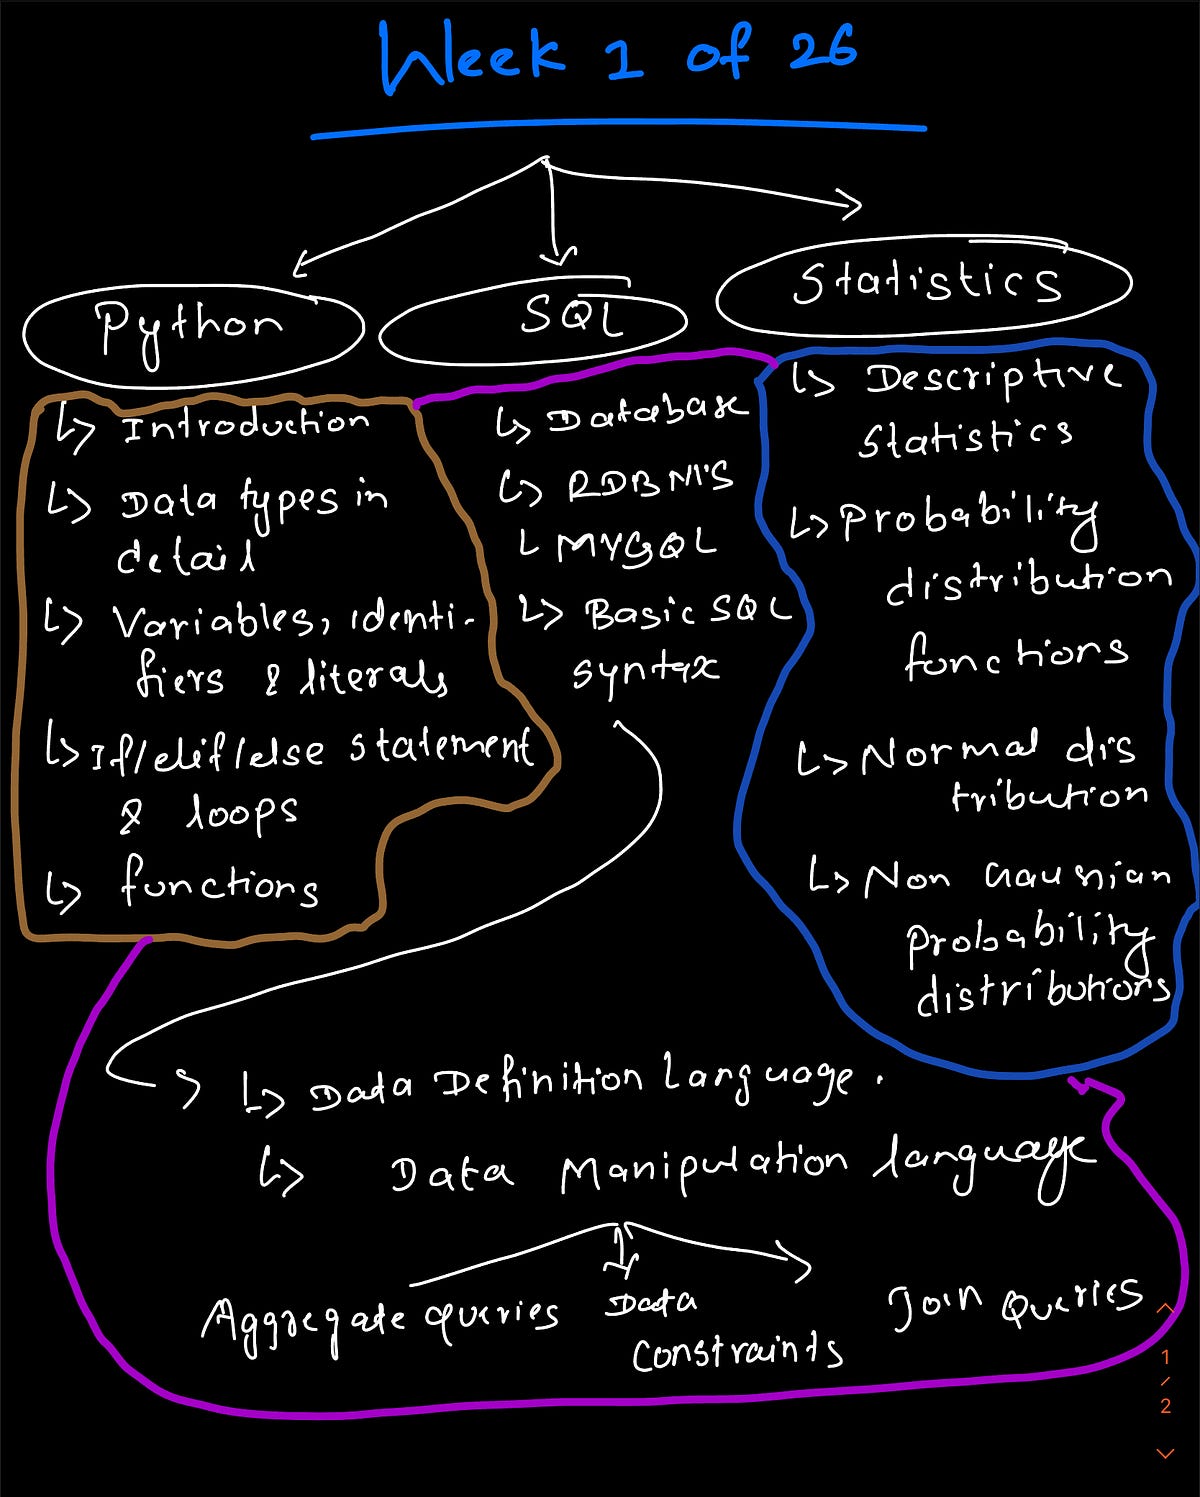 Week 1 of 26
Python
SQL
Statistics
↳ Introduction
↳ Data types in
detail
↳ Variables, identi-
fiers & literals
↳ If/elif/else statement
& loops
↳ functions
↳ Database
↳ RDBMS
↳ MYSQL
↳ Basic SQL
syntax
↳ Descriptive
Statistics
↳ Probability
distribution
functions
↳ Normal dis
tribution
↳ Non Gaussian
Probability
distributions
↳ Data Definition Language.
↳ Data Manipulation language
Aggregate queries
Data
Constraints
Join Queries
1
/
2